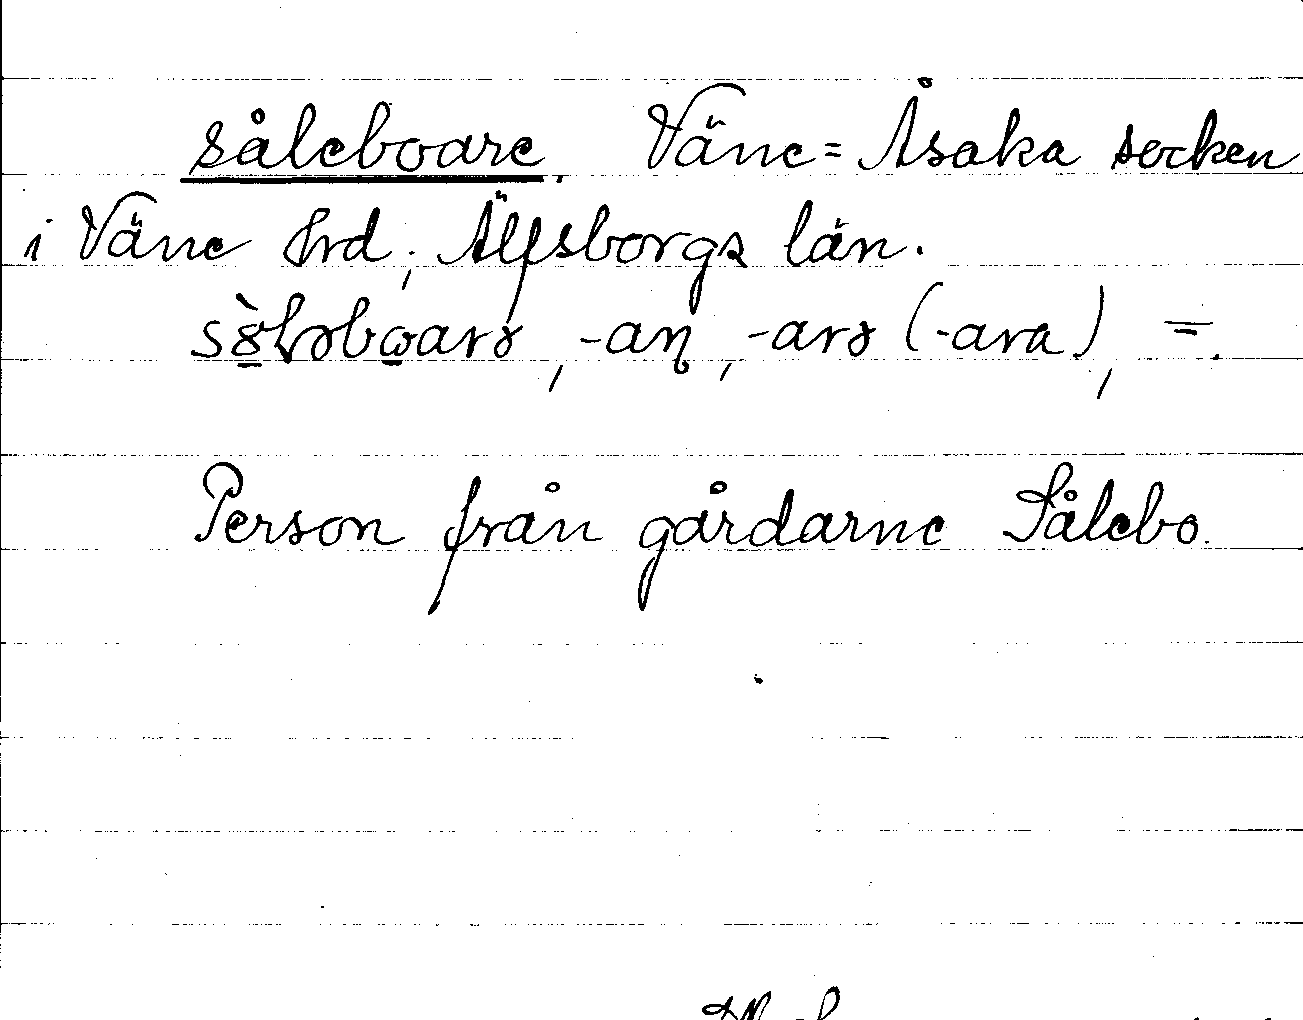 såleboare. Väne=Åsaka socken
i Väne hrd, Älfsborgs län.
-an, -arə (-ara), =.
Person från gårdarne Sålebo.